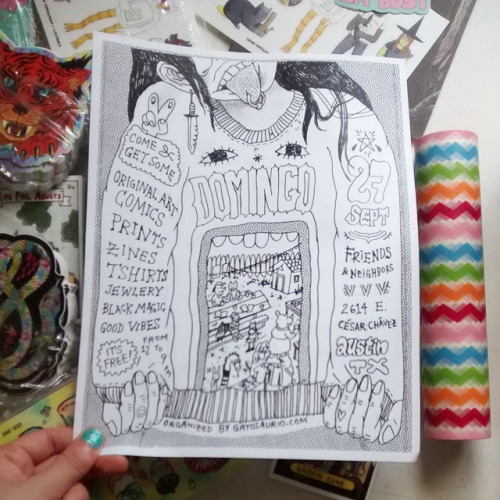 COME &
GET SOME
ORIGINAL ART
COMICS
PRINTS
ZINES
TSHIRTS
JEWLERY
BLACK MAGIC
GOOD VIBES
IT'S
FREE!
FROM
12 TO
DOMINGO
27
SEPT
FRIENDS
& NEIGHBORS
2614 E.
CÉSAR CHÁVEZ
austin
TX
ORGANIZED BY GATOSAURIO.COM